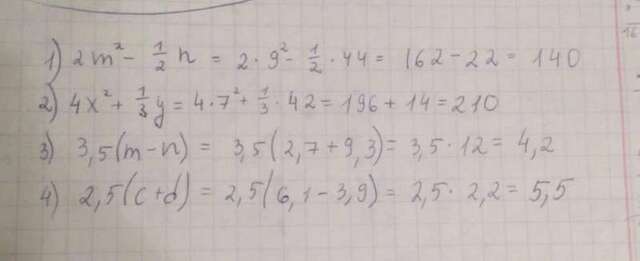 1) 2m² - 1/2 n = 2 · 9² - 1/2 · 44 = 162 - 22 = 140
2) 4x² + 1/3 y = 4 · 7² + 1/3 · 42 = 196 + 14 = 210
3) 3,5(m - n) = 3,5(2,7 + 9,3) = 3,5 · 12 = 4,2
4) 2,5(c + d) = 2,5(6,1 - 3,9) = 2,5 · 2,2 = 5,5